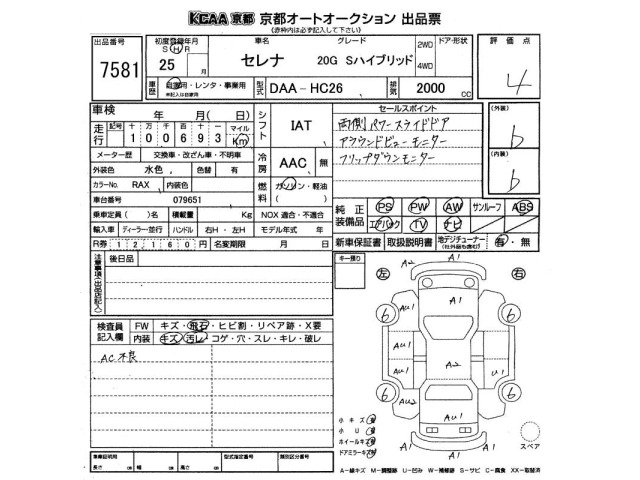 KCAA 京都 京都オートオークション 出品票
(赤枠内は必ず記入して下さい)
出品番号 初度登録年月 車名 グレード ドア・形状 評価点
7581 S H R 25 月 セレナ 20G Sハイブリッド 2WD 4WD 4
車歴 自家用・レンタ・事業用 型式 DAA-HC26 排気 2000 CC
車検 年 月(日) シフト IAT セールスポイント (外装)
走行 記号 十万千百十一 マイル 両側パワースライドドア b
100693 Km アラウンドビューモニター
メーター歴 交換車・改ざん車・不明車 冷房 AAC 無 フリップダウンモニター (内装)
外装色 水色 色替 有 b
カラーNo. RAX 内装色 燃料 ガソリン・軽油
車台番号 079651 ( ) 純正装備品 PS PW AW サンルーフ ABS
乗車定員 ( )名 積載量 Kg NOX 適合・不適合 エアバック TV ナビ
輸入車 ディーラー・並行 ハンドル 右H・左H モデル年式 年 新車保証書 取扱説明書 地デジチューナー (社外品も含む) 有・無
R券 12,160円 名変期限 月 日
注意事項(出品店記入) 後日品 キー預り 左 右
A2 A1 A1
6 AU1 6
検査員記入欄 FW キズ・飛石・ヒビ割・リペア跡・X要
内装 キズ・汚レ・コゲ・穴・スレ・キレ・破レ
AC不良 AU1 A2 U1
6 AU2 AU1 A1 6
小キズ有
小U有
ホイールキズ有
ドアミラーキズ有 A1 A1 A1 スペア
車両証明用 長さ cm 幅 cm 高さ cm 型式指定番号 類別区分番号
A-線キズ M-調整跡 U-凹み W-補修跡 S-サビ C-腐食 XX-取替済